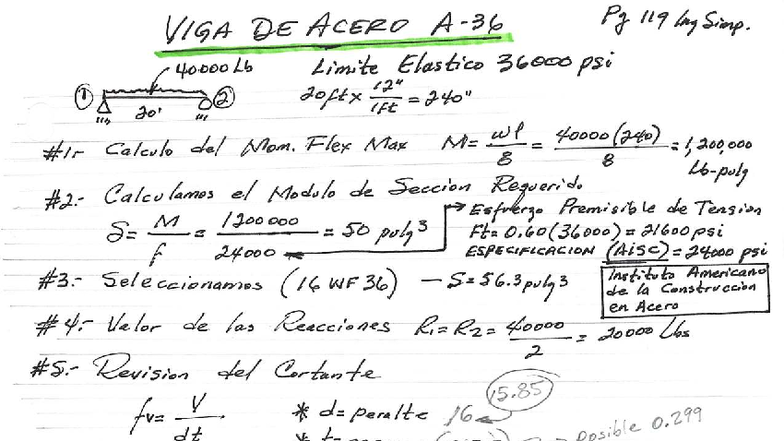 VIGA DE ACERO A-36
Pg 119 Ing Simp.
40000 Lb
Limite Elastico 36000 psi
① 20' ②
20ft x 12"/1ft = 240"
#1:- Calculo del Mom. Flex Max M = wl/8 = 40000(240)/8 = 1,200,000 Lb-pulg
#2:- Calculamos el Modulo de Seccion Requerido
S = M/f = 1200000/24000 = 50 pulg³
Esfuerzo Premisible de Tension
Ft = 0.60(36000) = 21600 psi
ESPECIFICACION (AISC) = 24000 psi
#3:- Seleccionamos (16 WF 36) - S = 56.3 pulg³
Instituto Americano
de la Construccion
en Acero
#4:- Valor de las Reacciones R1 = R2 = 40000/2 = 20000 Lbs
#5:- Revision del Cortante
15.85
fv = V/dt * d = peralte 16
Posible 0.299